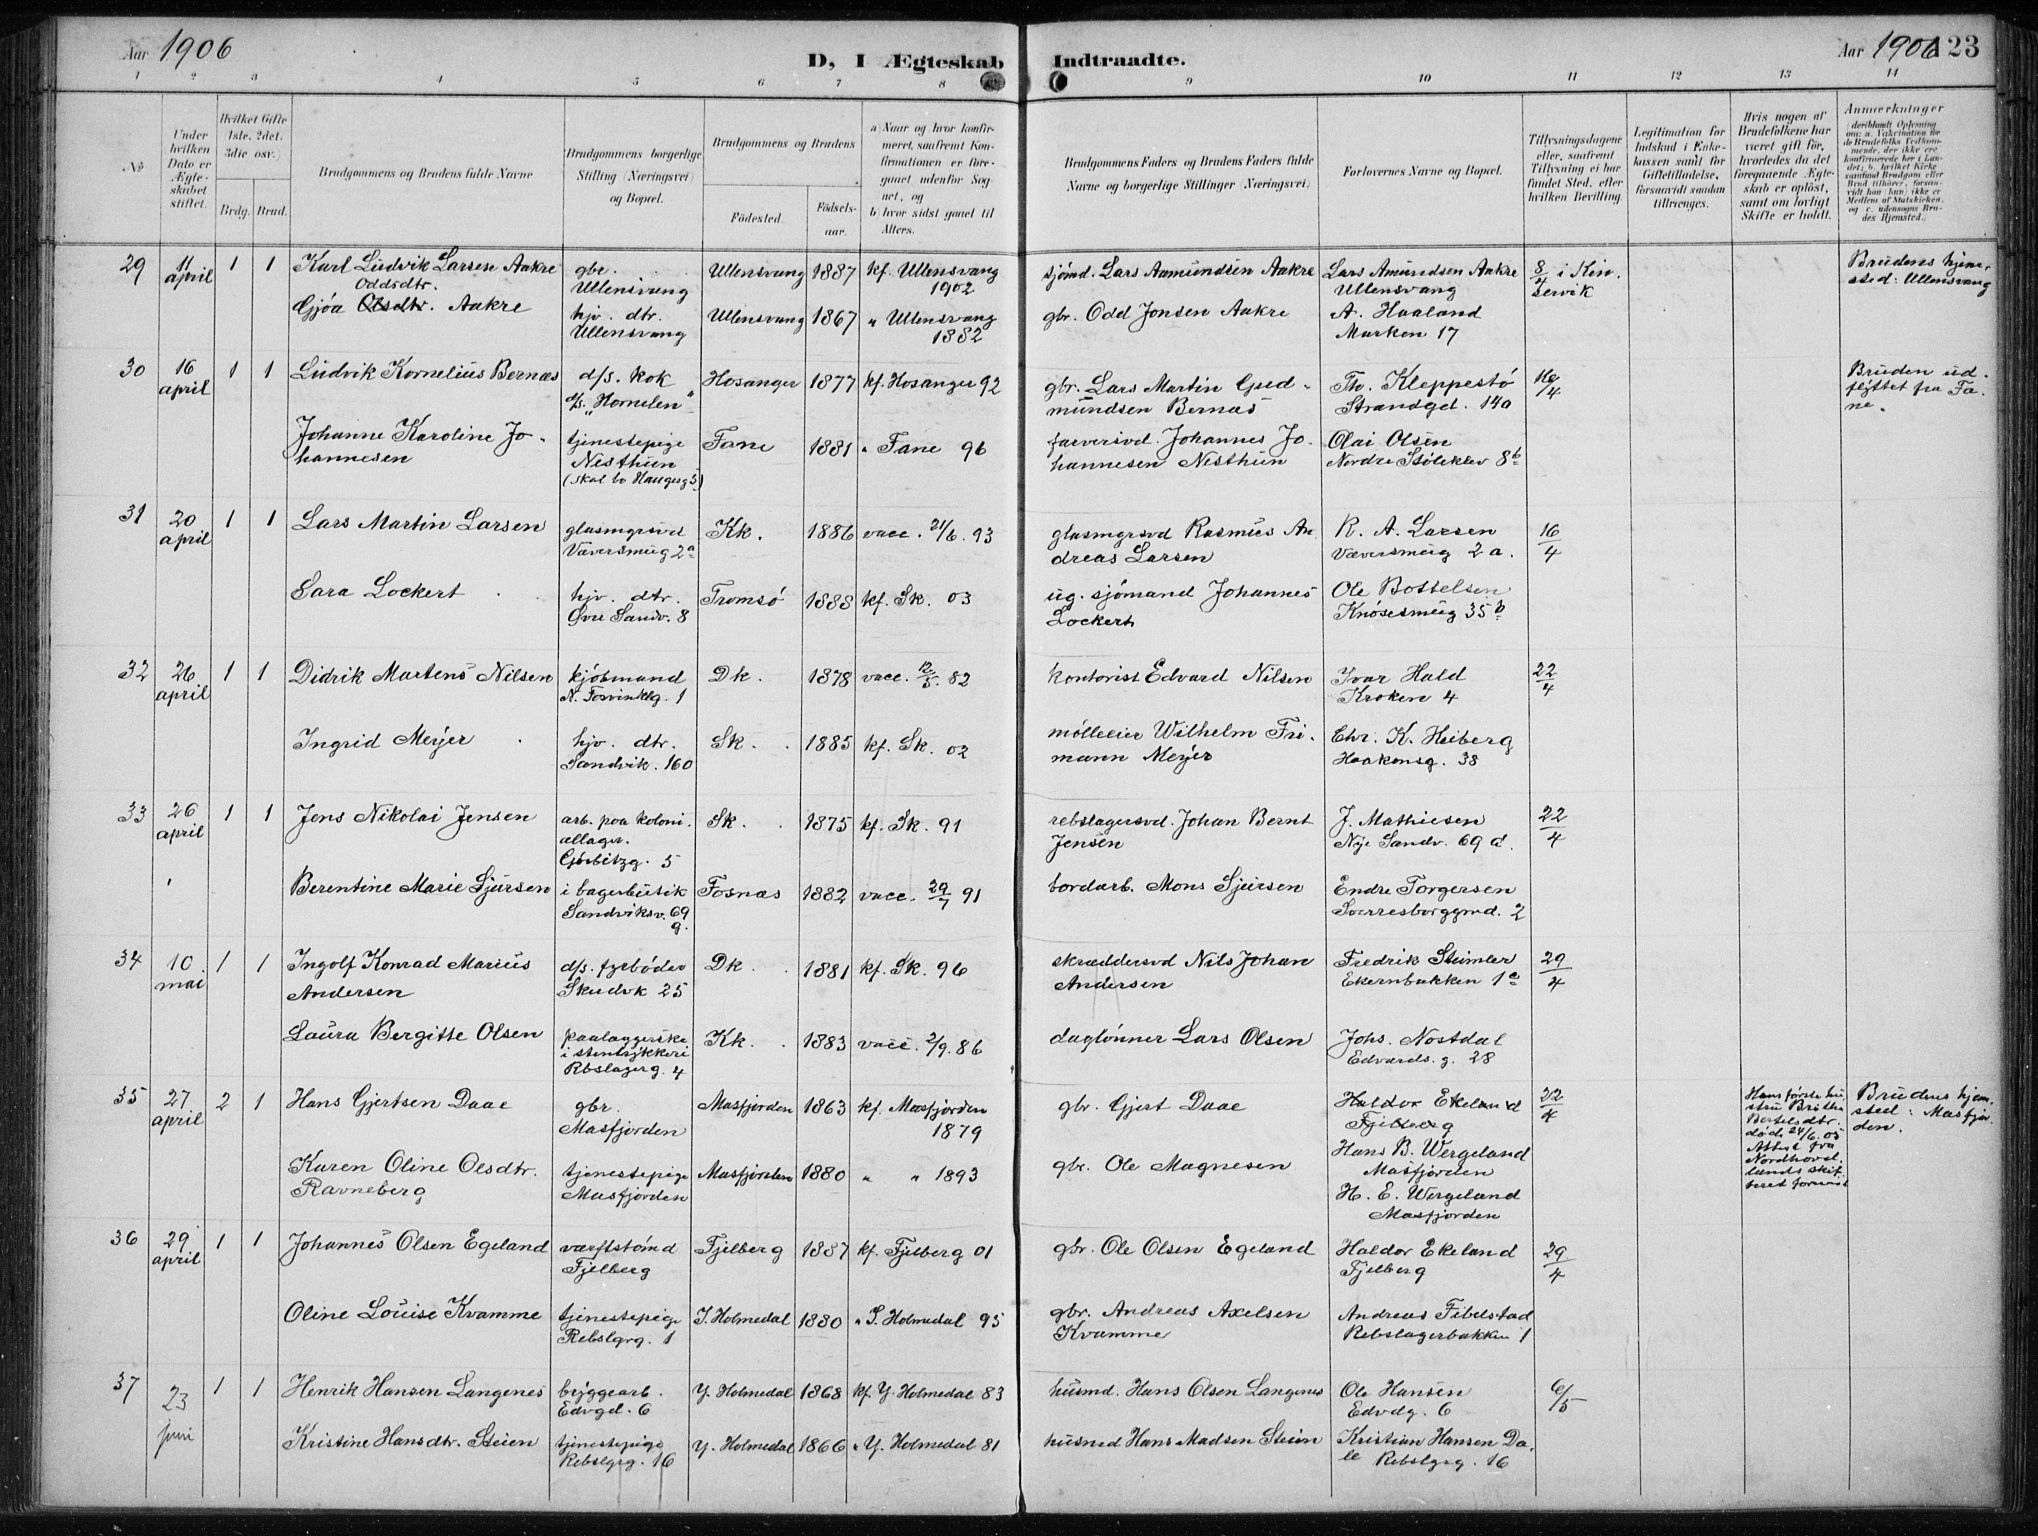 Aar 1906
D, I Ægteskab Indtraadte.
Aar 1906 123
1 2 3 4 5 6 7 8 9 10 11 12 13 14
No
Under hvilken Dato er Ægteskabet stiftet.
Hvilket Gifte 1ste, 2det, 3die osv.
Brdg. Brud.
Brudgommens og Brudens fulde Navne
Brudgommens borgerlige Stilling (Næringsvei) og Bopæl.
Brudgommens og Brudens
Fødested. Fødselsaar.
a) Naar og hvor konfirmeret, saafremt Konfirmationen er foregaaet udenfor Sognet, og
b) hvor sidst gaaet til Alters.
Brudgommens Faders og Brudens Faders fulde Navne og borgerlige Stillinger (Næringsvei)
Forlovernes Navne og Bopæl.
Tillysningsdagene eller, saafremt Tillysning ei har fundet Sted, efter hvilken Bevilling.
Legitimation for Indskud i Enkekassen samt for Giftetilladelse, forsaavidt saadan tiltrænges.
Hvis nogen af Brudefolkene har været gift før, hvorledes da det foregaaende Ægteskab er opløst, samt om lovligt Skifte er holdt.
Anmærkninger
29 11 april 1 1 Karl Ludvik Larsen Aakre gbr. Ullensvang Ullensvang 1887 kf. Ullensvang 1902 sjømd. Lars Aamundsen Aakre Lars Amundsen Aakre Ullensvang 8/4 i Kinservik Brudens hjemsted: Ullensvang
Oddsdtr.
Gjøa Olsdtr. Aakre hjv. dtr. Ullensvang Ullensvang 1867 " Ullensvang 1882 gbr. Odd Jonsen Aakre A. Haaland Marken 17
30 16 april 1 1 Ludvik Kornelius Bernæs d/s. kok d/s. "Hornelen" Hosanger 1877 kf. Hosanger 92 gbr. Lars Martin Gudmundsen Bernæs Th. Kleppestø Strandgd. 14a 16/4 Bruden udflyttet fra Fane.
Johanne Karoline Johannesen tjenestepige Nesthun (skal bo Haugeg 5) Fane 1881 " Fane 96 farversvd. Johannes Johannesen Nesthun Olai Olsen Nordre Stølekleв 8b
31 20 april 1 1 Lars Martin Larsen glasmgrsvd Væversmug 2a Kk. 1886 vacc. 21/6. 93 glasmgrsvd Rasmus Andreas Larsen R. A. Larsen Væversmug 2 a. 16/4
Sara Lockert hjv. dtr. Øvre Sandv. 8 Tromsø 1888 kf. Sk. 03 ug. sjømand Johannes Lockert Ole Bottelsen Knøsesmug 35 b
32 26 april 1 1 Didrik Martens Nilsen kjøbmand N. Fosvinklg. 1 Dk. 1878 vacc. 12/5. 82 kontorist Edvard Nilsen Ivar Hald Kroken 4 22/4
Ingrid Meyer hjv. dtr. Sandvik. 160 Sk. 1885 kf. Sk. 02 mølleeier Wilhelm Frimann Meyer Chr. K. Heiberg Haakonsg. 38
33 26 april 1 1 Jens Nikolai Jensen arb. paa koloniallager. Gjøbitzg. 5 Sk. 1875 kf. Sk. 91 rebslagersvd. Johan Bernt Jensen J. Mathiesen Nye Sandv. 69 d. 22/4
Berentine Marie Sjursen i bagerbutik Sandviksv. 69 g. Fosnæs 1882 vacc. 29/7 91 bordarb. Mons Sjursen Endre Torgersen Sverresborggmd. 2
34 10 mai 1 1 Ingolf Konrad Marius Andersen d/s. fyrbøder Skudvk 25 Dk. 1881 kf. Sk. 96 skræddersvd Nils Johan Andersen Fredrik Stimler Ekernbakken 1c 29/4
Laura Bergitte Olsen paalæggerske i stentrykkeri Rbslagerg. 4 Kk. 1883 vacc. 2/9. 86 daglønner Lars Olsen Johs. Nostdal Edvards. g. 28
35 27 april 2 1 Hans Gjertsen Daae gbr. Masfjorden Masfjorden 1863 kf. Masfjorden 1879 gbr. Gjert Daae Haldor Ekeland Fjelberg Hans B. Wergeland Masfjorden 22/4 Hans første hustru Britha Bertelsdtr. død 24/6. 05 Attest fra Nordhordlands skifteret forevist Brudens hjemsted: Masfjorden.
Karen Oline Olsdtr. Ravneberg tjenestepige Masfjorden Masfjorden 1880 " " 1893 gbr. Ole Magnesen H. E. Wergeland Masfjorden
36 29 april 1 1 Johannes Olsen Egeland værftstømd Fjelberg Fjelberg 1887 kf. Fjelberg 01 gbr. Ole Olsen Egeland Haldor Ekeland Fjelberg 29/4
Oline Louise Kvamme tjenestepige Rebslgrg. 1 I. Holmedal 1880 " I. Holmedal 95 gbr. Andreas Axelsen Kvamme Andreas Fibelstad Rebslagerbakken 1
37 23 juni 1 1 Henrik Hansen Langenes bryggearb. Edvgd. 6 Y. Holmedal 1868 kf. Y. Holmedal 83 husmd. Hans Olsen Langenes Ole Hansen Edvdg. 6 6/5
Kristine Hansdtr. Steien tjenestepige Rebslgrg. 16 Y. Holmedal 1866 " Y. Holmedal 81 husmd Hans Madsen Steien Kristian Hansen Dale Rebslgrg. 16